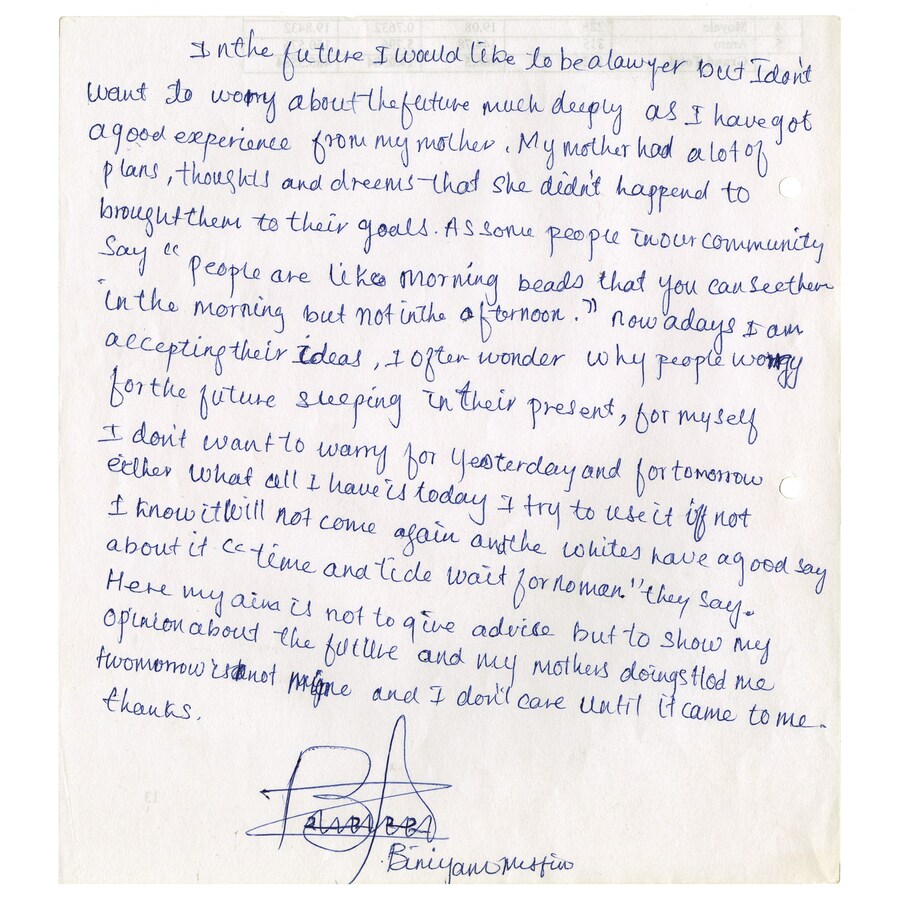 In the future I would like to be a lawyer but I don't
want to worry about the future much deeply as I have got
a good experience from my mother. My mother had a lot of
plans, thoughts and dreems that she didn't happend to
brought them to their goals. As some people in our community
say “ people are like morning beads that you can see them
in the morning but not in the afternoon.” now adays I am
accepting their ideas, I often wonder why people worry
for the future sleeping in their present, for myself
I don't want to warry for yesterday and for tomorrow
either what all I have is today I try to use it if not
I know it will not come again and the whites have a good say
about it “time and tide wait for no man.” they say.
Here my aim is not to give advise but to show my
opinion about the future and my mothers doings
twomorrow is not mine and I don't care until it came to me.
thanks.
Biniyam Mesfin